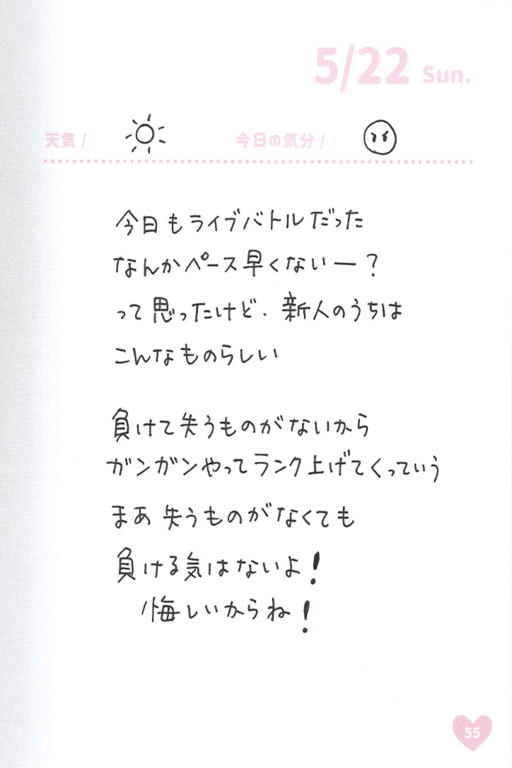 5/22 Sun.
天気/ 今日の気分/
今日もライブバトルだった
なんかペース早くないー?
って思ったけど、新人のうちは
こんなものらしい
負けて失うものがないから
ガンガンやってランク上げてくっていう
まあ失うものがなくても
負ける気はないよ!
悔しいからね!
55